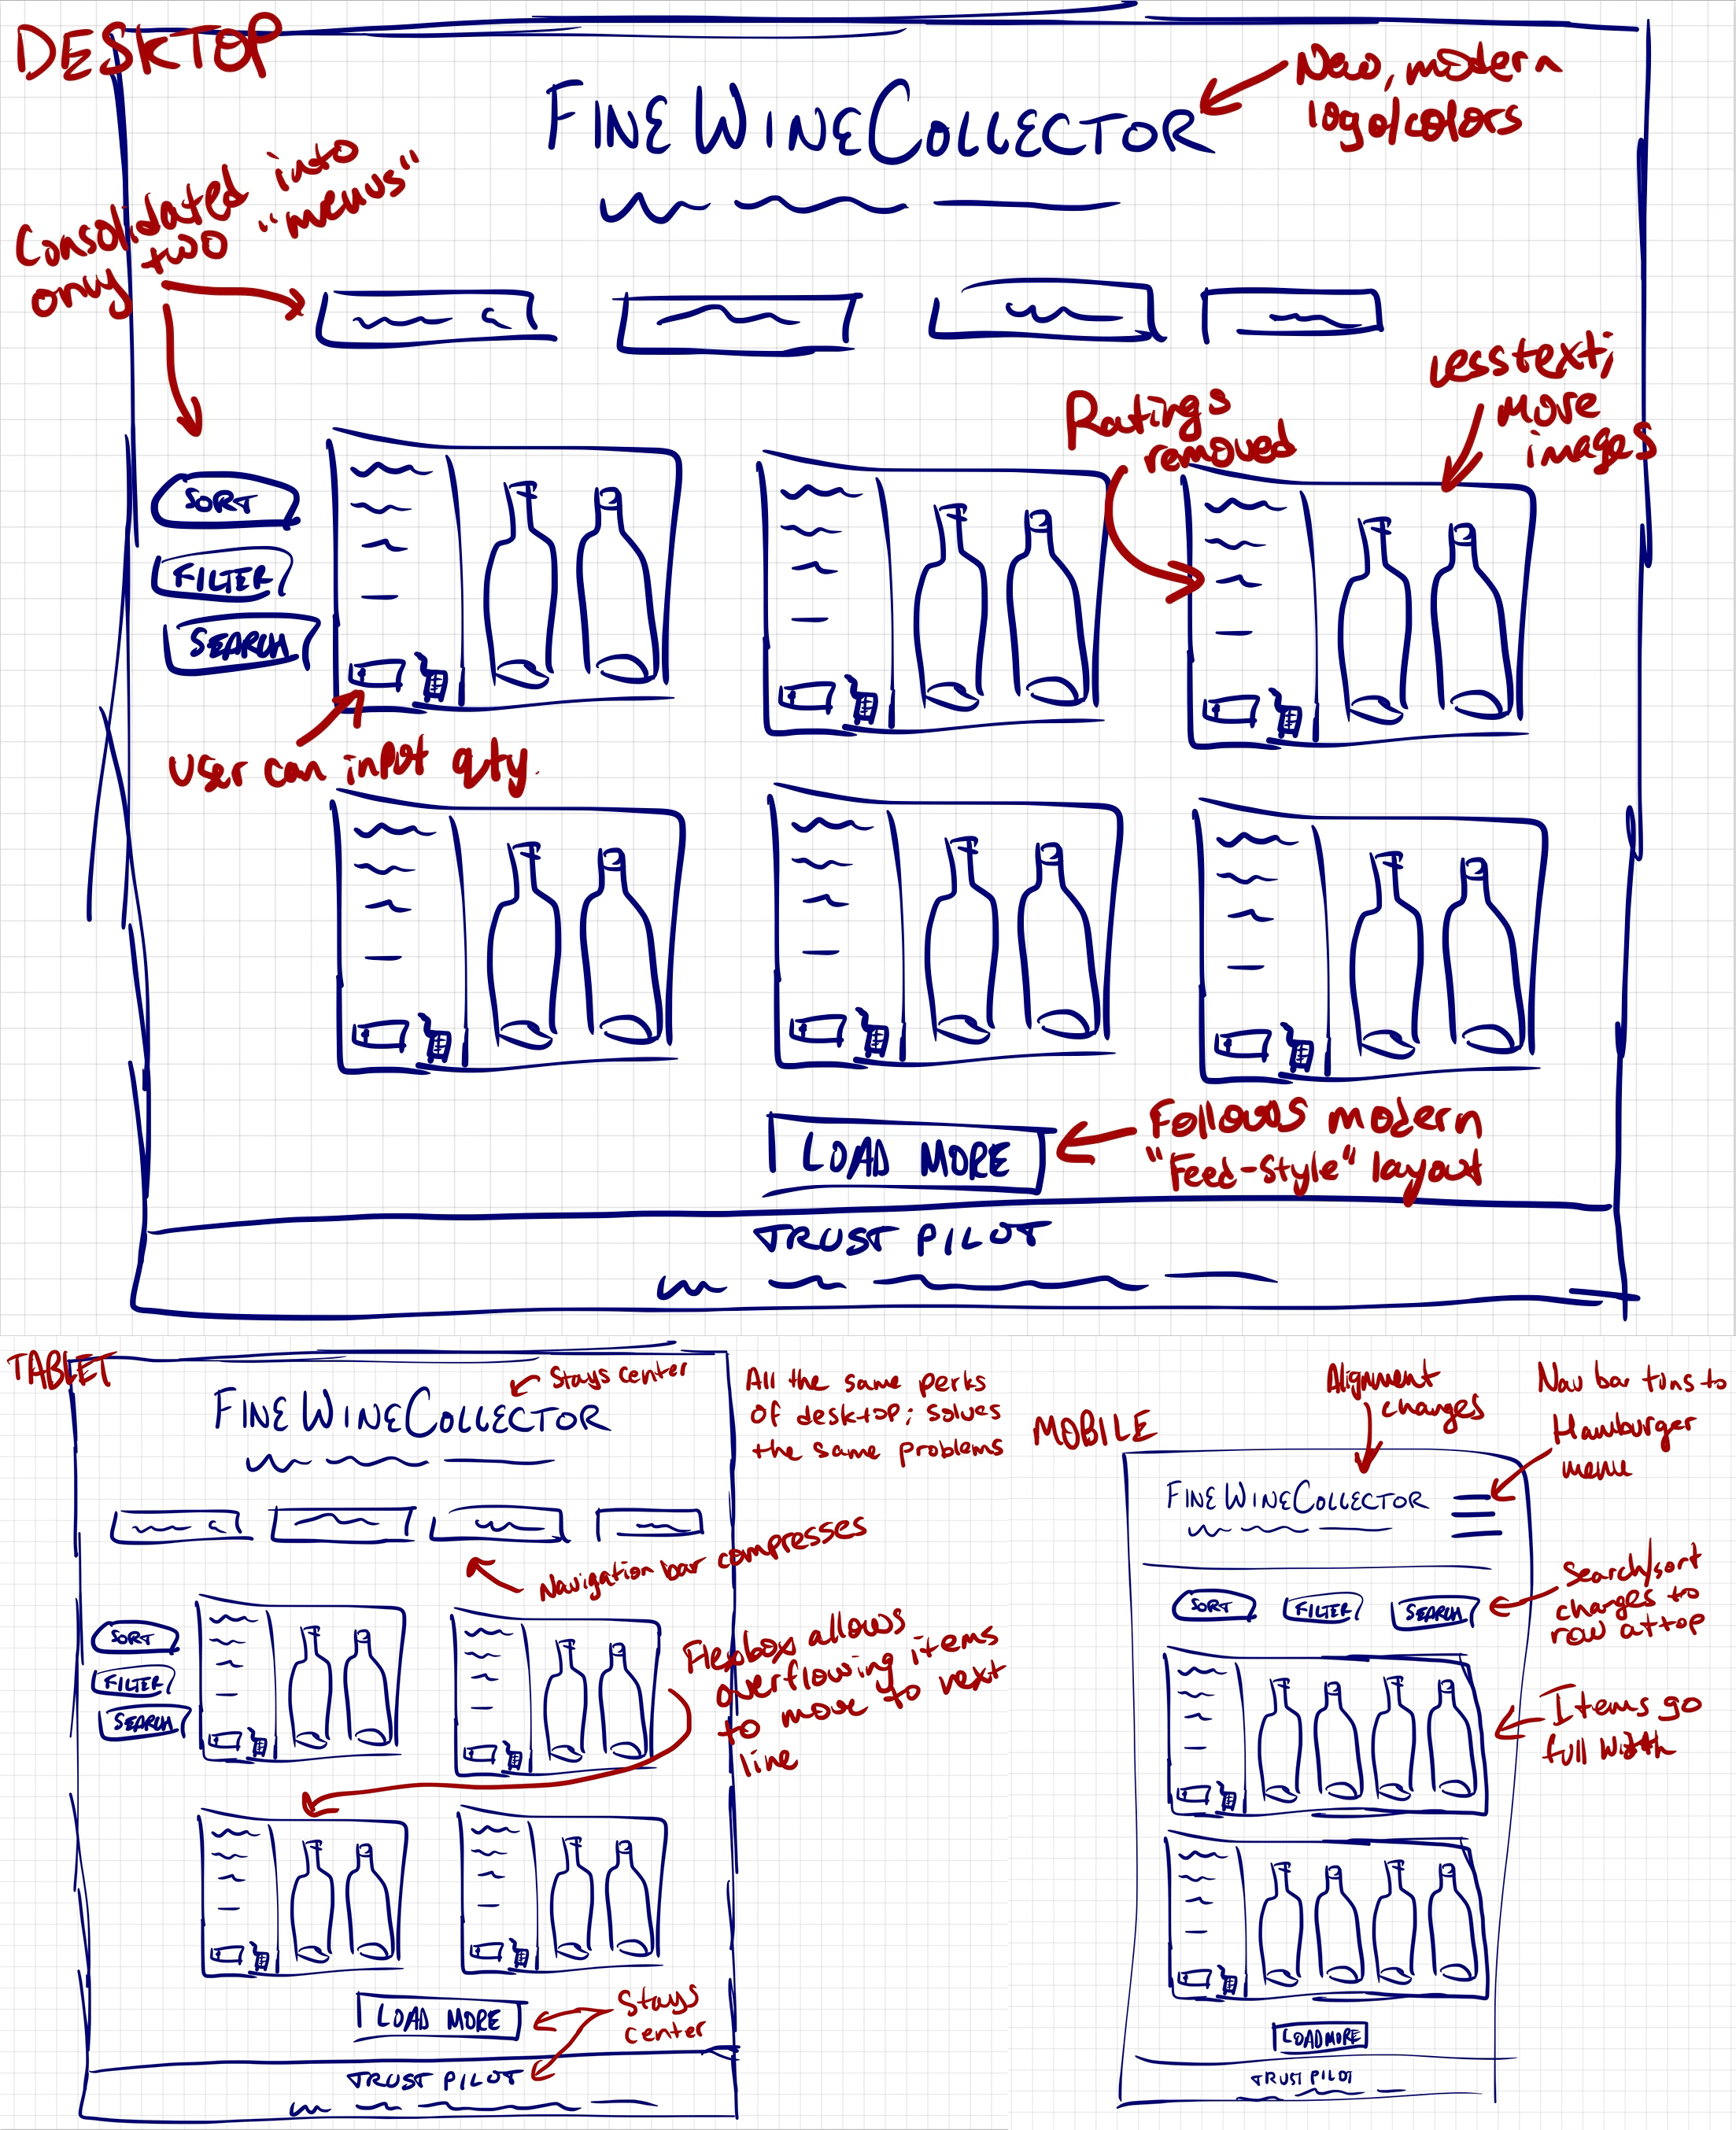 DESKTOP
FINEWINECOLLECTOR
New, modern
logo/colors
Consolidated into
only two "menus"
Ratings
removed
Less text;
More
images
SORT
FILTER
SEARCH
User can input qty.
LOAD MORE
Follows modern
"Feed-Style" layout
TRUST PILOT
TABLET
Stays center
FINEWINECOLLECTOR
All the same perks
of desktop; solves
the same problems
Navigation bar compresses
SORT
FILTER
SEARCH
Flexbox allows
overflowing items
to move to next
line
LOAD MORE
Stays
center
TRUST PILOT
MOBILE
Alignment
changes
Nav bar turns to
Hamburger
menu
FINEWINECOLLECTOR
Search/sort
changes to
row at top
SORT
FILTER
SEARCH
Items go
full width
LOAD MORE
TRUST PILOT